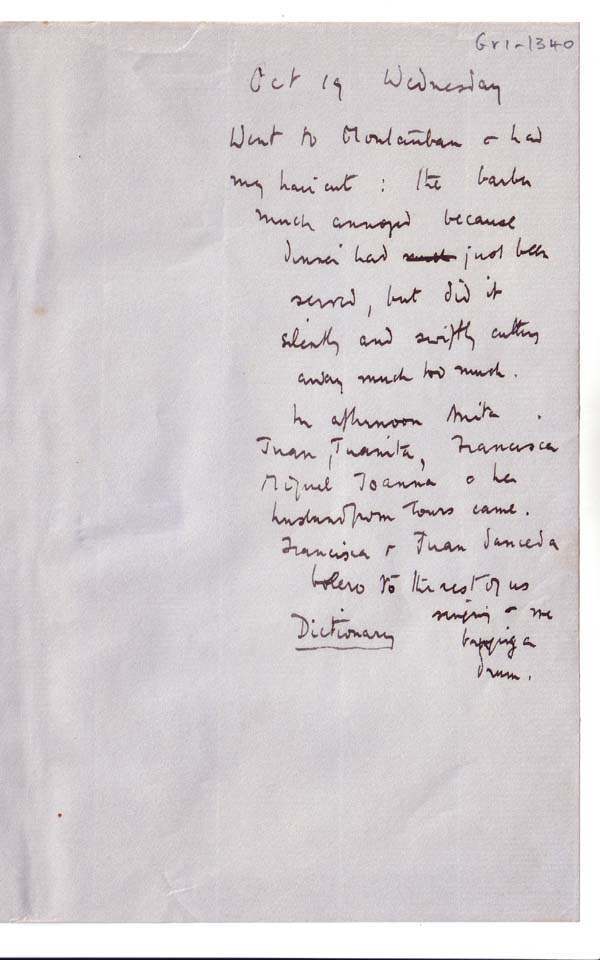 Gr1-1340
Oct 19 Wednesday
Went to Montauban & had
my hair cut : the barber
much annoyed because
dinner had just been
served, but did it
silently and swiftly cutting
away much too much.
In afternoon Anita .
Juan, Juanita, Francisca
Miguel Joanna & her
husband from Tours came.
Francisca & Juan danced a
bolero to the rest of us
singing & me
Dictionary banging a
drum.